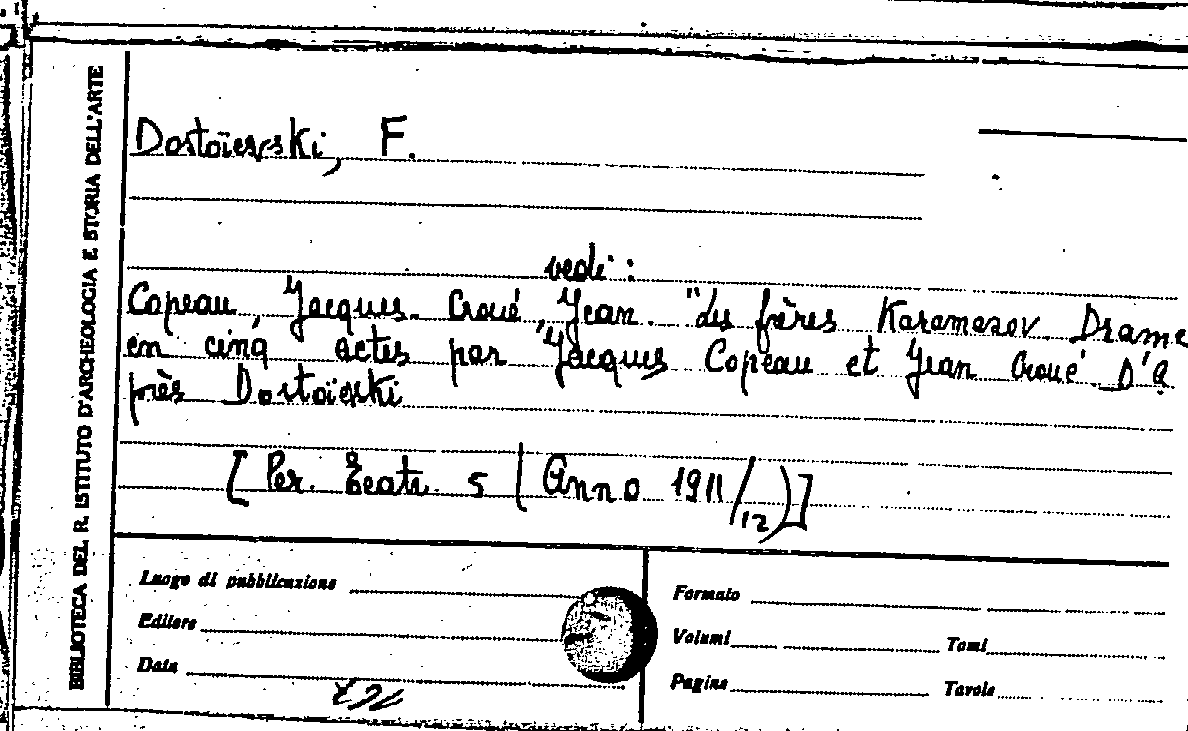 BIBLIOTECA DEL R. ISTITUTO D'ARCHEOLOGIA E STORIA DELL'ARTE
Dostoïevski, F.
vedi:
Copeau, Jacques. Croué, Jean. "Les frères Karamazov Drame
en cinq actes par Jacques Copeau et Jean Croué D'a
près Dostoïevski
[Per. Teatr. 5 (Anno 1911/12)]
Luogo di pubblicazione
Editore
Data
Formato
Volumi Tomi
Pagine Tavole